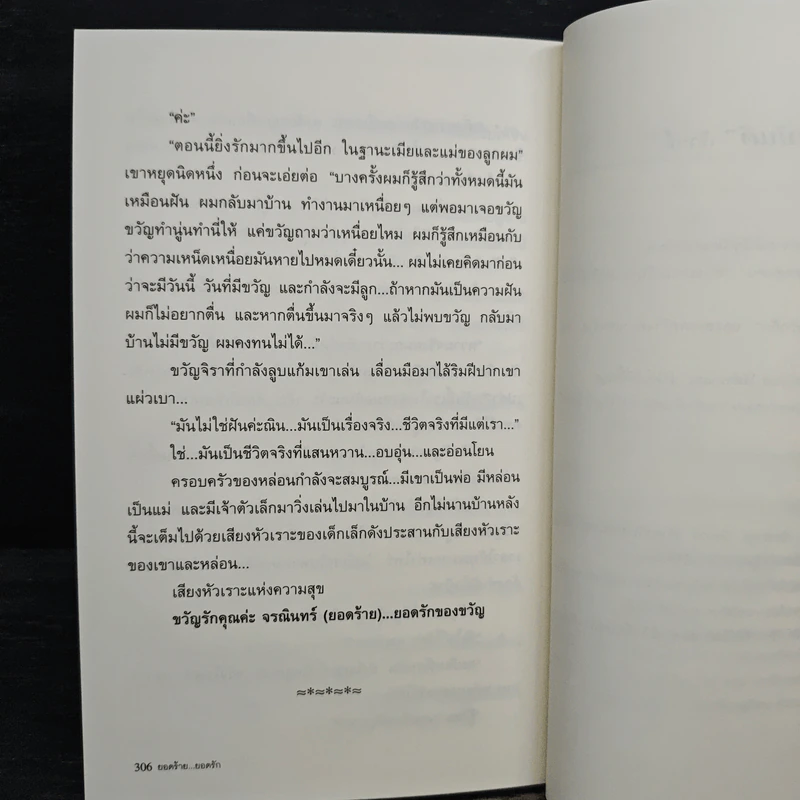 “ค่ะ”
“ตอนนี้ยิ่งรักมากขึ้นไปอีก ในฐานะเมียและแม่ของลูกผม”
เขาหยุดนิดหนึ่ง ก่อนจะเอ่ยต่อ “บางครั้งผมก็รู้สึกว่าทั้งหมดนี้มัน
เหมือนฝัน ผมกลับมาบ้าน ทำงานมาเหนื่อยๆ แต่พอมาเจอขวัญ
ขวัญทำนู่นทำนี่ให้ แค่ขวัญถามว่าเหนื่อยไหม ผมก็รู้สึกเหมือนกับ
ว่าความเหน็ดเหนื่อยมันหายไปหมดเดี๋ยวนั้น... ผมไม่เคยคิดมาก่อน
ว่าจะมีวันนี้ วันที่มีขวัญ และกำลังจะมีลูก...ถ้าหากมันเป็นความฝัน
ผมก็ไม่อยากตื่น และหากตื่นขึ้นมาจริงๆ แล้วไม่พบขวัญ กลับมา
บ้านไม่มีขวัญ ผมคงทนไม่ได้...”
ขวัญจิราที่กำลังลูบแก้มเขาเล่น เลื่อนมือมาไล้ริมฝีปากเขา
แผ่วเบา...
“มันไม่ใช่ฝันค่ะณิน...มันเป็นเรื่องจริง...ชีวิตจริงที่มีแต่เรา...”
ใช่...มันเป็นชีวิตจริงที่แสนหวาน...อบอุ่น...และอ่อนโยน
ครอบครัวของหล่อนกำลังจะสมบูรณ์...มีเขาเป็นพ่อ มีหล่อน
เป็นแม่ และมีเจ้าตัวเล็กมาวิ่งเล่นไปมาในบ้าน อีกไม่นานบ้านหลัง
นี้จะเต็มไปด้วยเสียงหัวเราะของเด็กเล็กดังประสานกับเสียงหัวเราะ
ของเขาและหล่อน...
เสียงหัวเราะแห่งความสุข
ขวัญรักคุณค่ะ จรณินทร์ (ยอดร้าย)...ยอดรักของขวัญ
≈*≈*≈*≈
306 ยอดร้าย...ยอดรัก